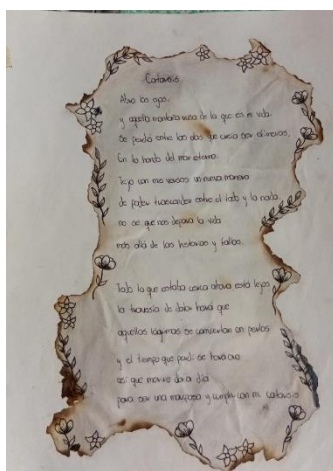 Catarsis
Abro los ojos,
y aquella montaña rusa de lo que es mi vida
Se perdió entre las olas que creía ser efímeras,
En lo hondo del mar eterno.
Tejo con mis versos un nueva manera
de poder trascender entre el todo y la nada.
no se que nos depara la vida
más allá de las historias y fallos.
Todo lo que estaba cerca ahora está lejos
la travesía de dolor hará que
aquellas lágrimas se conviertan en perlas
y el tiempo que perdí se hará oro
así que muero día a día
para ser una mariposa y cumplir con mi catarsis